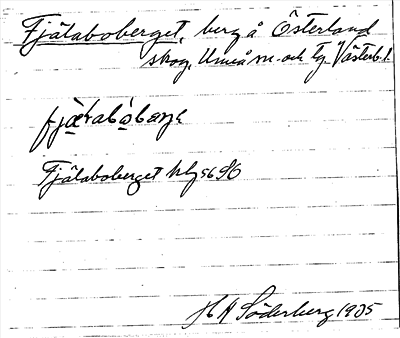 Fjälaboberget, berg å Österland
skog, Umeå sn. och tg. Västerb. l.
fjælabobærje
Fjälaboberget blg 56 SO
H A Söderberg 1935